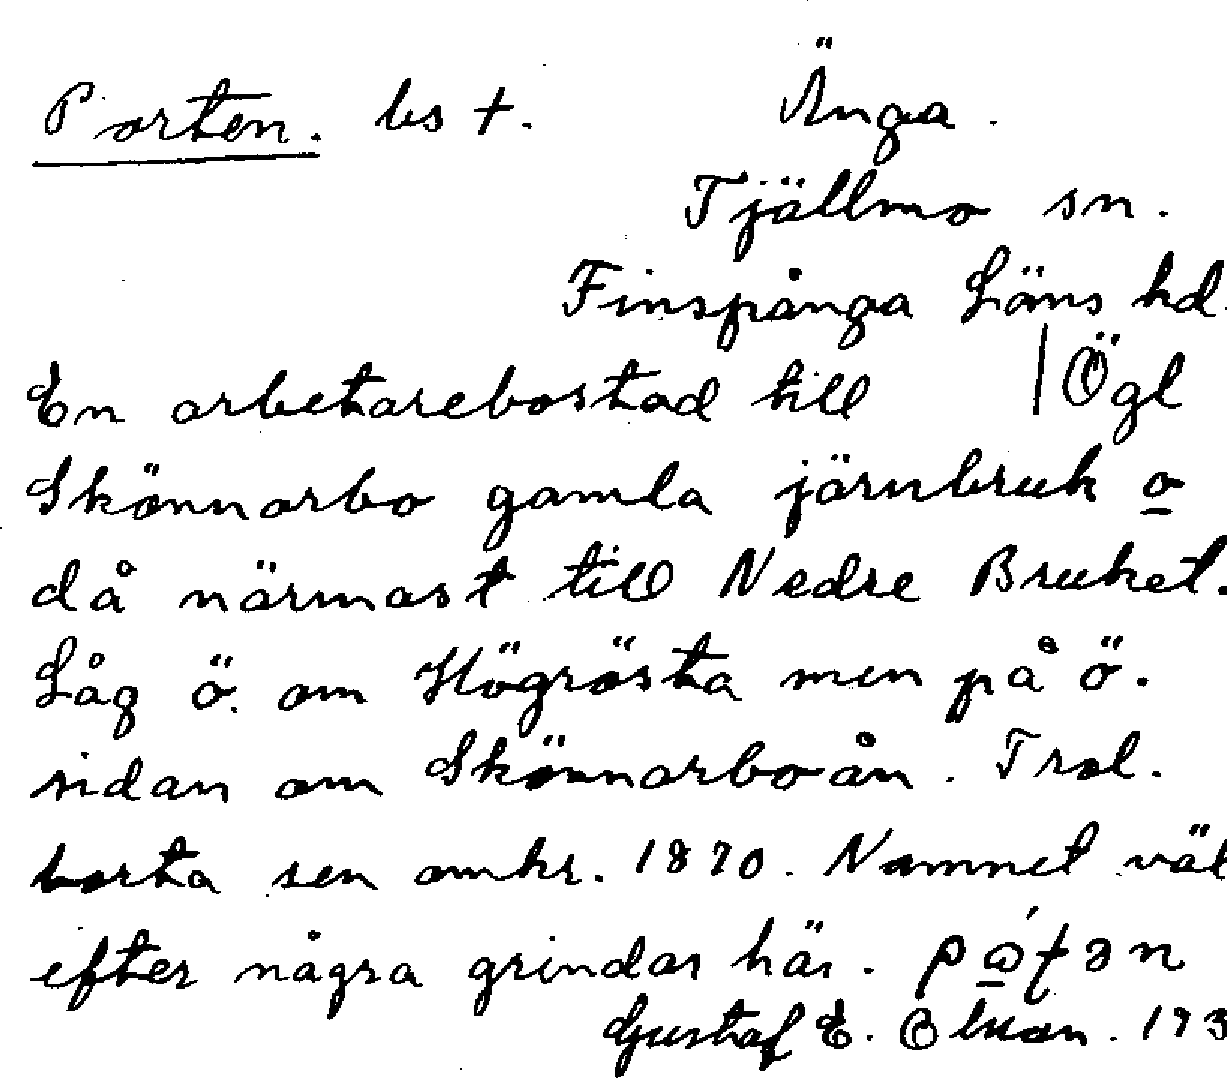 Porten. bs †. Änga.
Tjällmo sn.
Finspånga Läns hd.
En arbetarebostad till | Ögl
Skönnarbo gamla järnbruk o
då närmast till Nedre Bruket.
Låg ö. om Högrösta men på ö.
sidan om Skönnarboån. Trol.
borta sen omkr. 1870. Namnet väl
efter några grindar här.
Gustaf E. 193